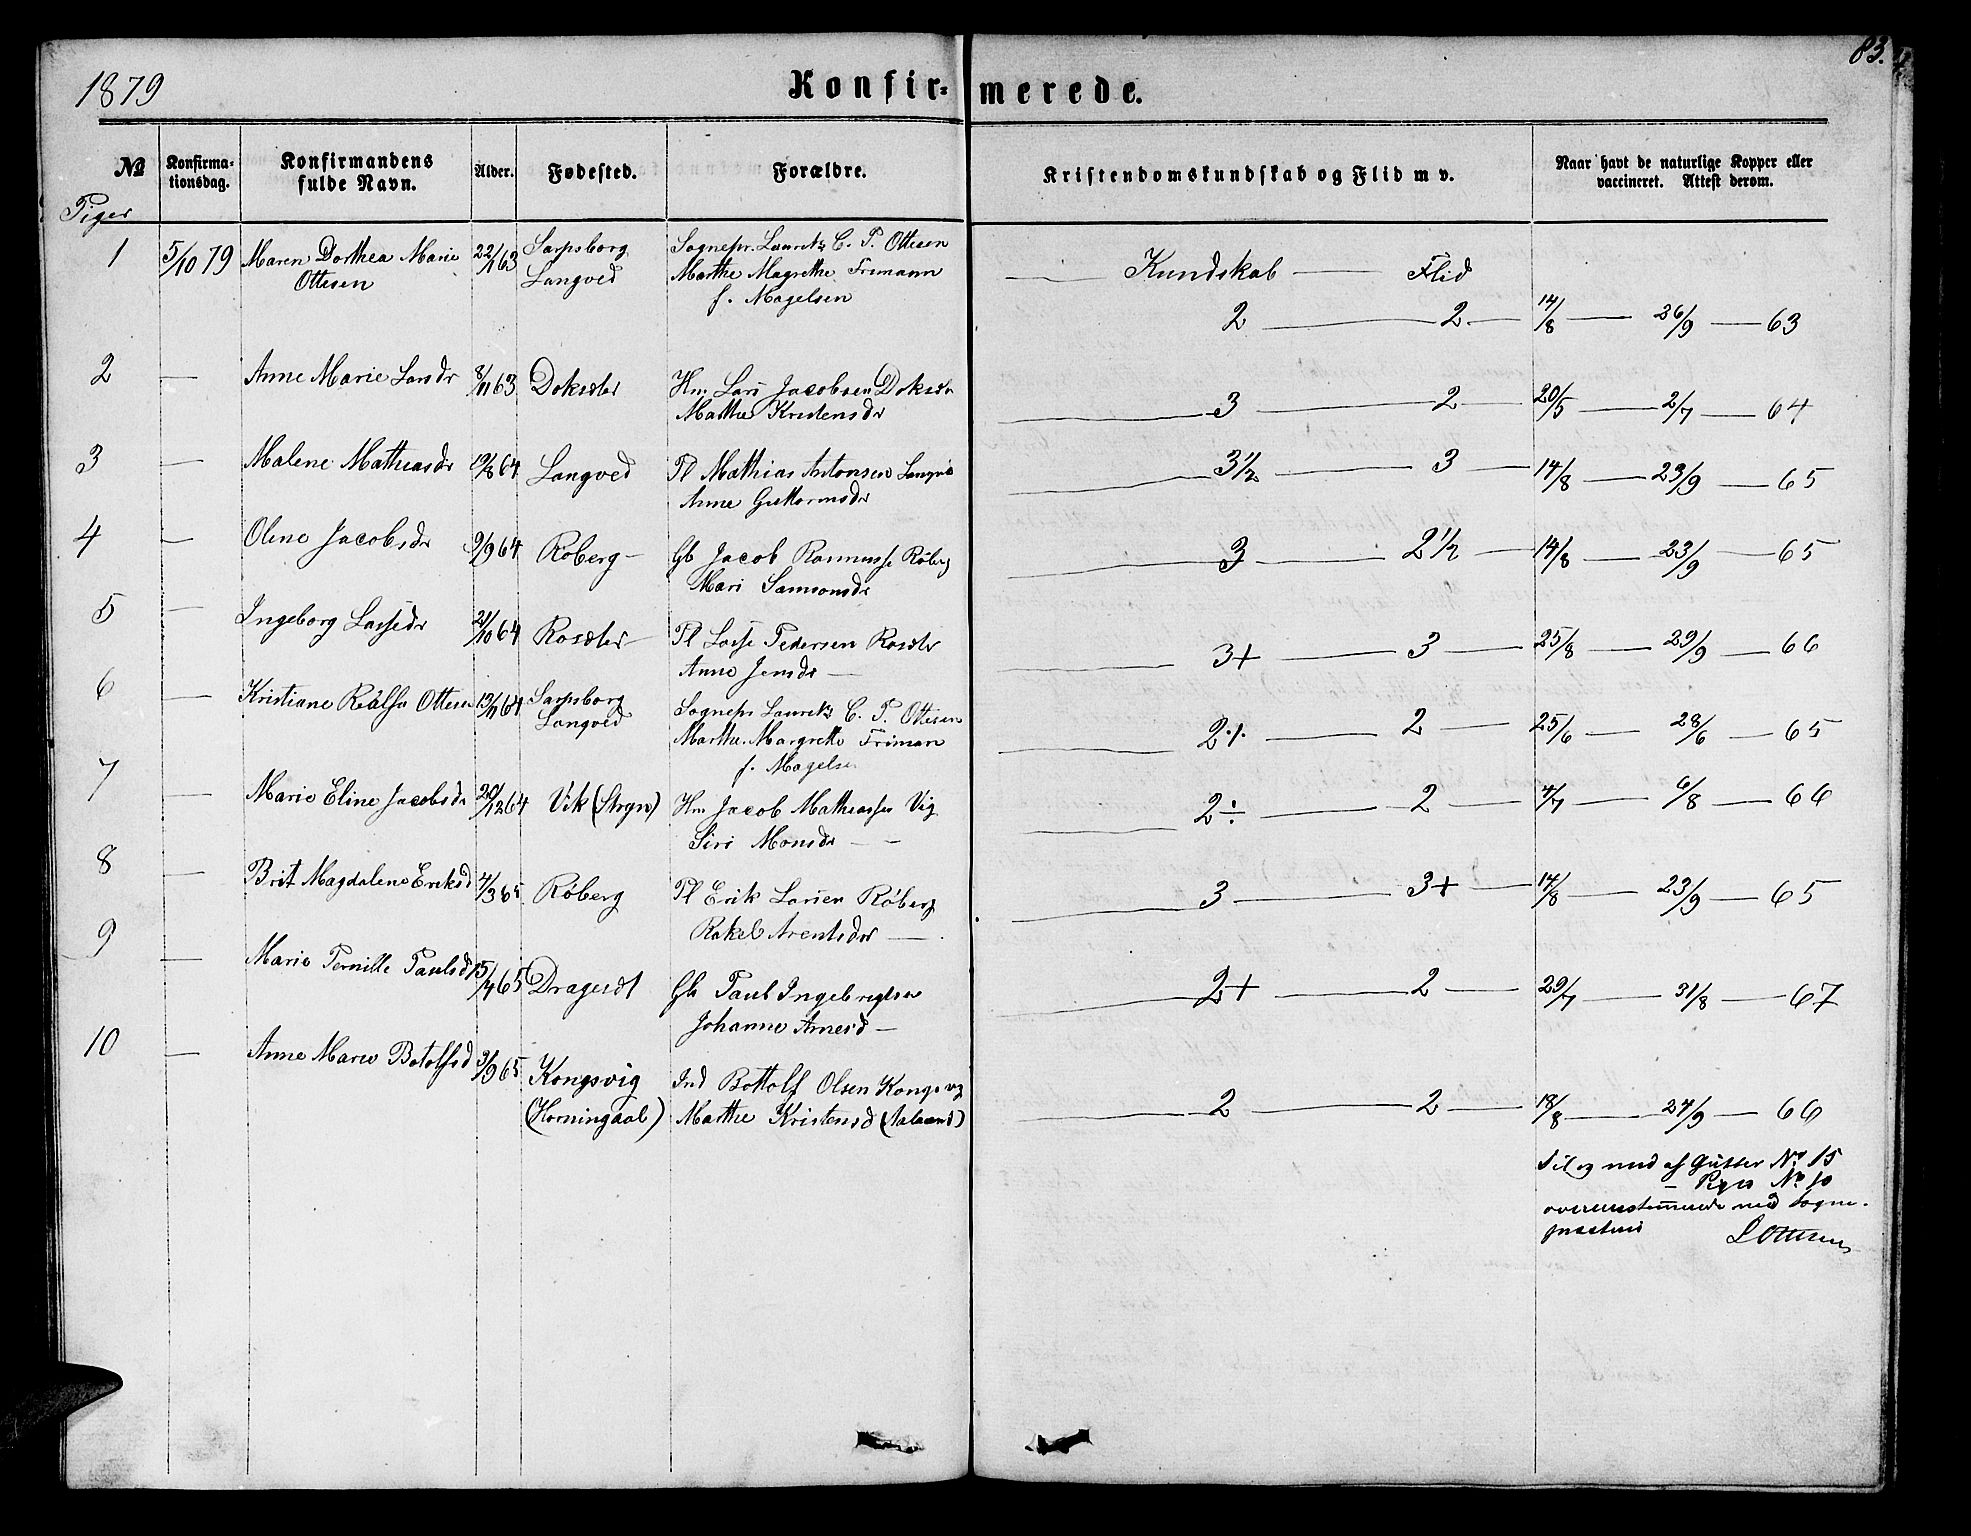 83.
1879
Konfir-
merede.
№
Konfirma-
tionsdag.
Konfirmandens
fulde Navn.
Alder.
Fødested.
Forældre.
Kristendomskundskab og Flid m v.
Naar havt de naturlige Kopper eller
vaccineret. Attest derom.
Piger
Kundskab — Flid
1 5/10 79 Maren Dorthea Marie 22/1 63 Sarpsborg Sognepr. Lauritz C. P. Ottesen
Ottesen Langved Marthe Magrethe Frimann
f. Magelsen
2 — 2 — 14/8 — 26/9 — 63
2 — Anne Marie Larsdr 8/11 63 Dokster Hm Lars Jacobsen Dokstr
Marthe Kristensdr
3 — 2 — 20/5 — 2/7 — 64
3 — Malene Mathiasdr 19/8 64 Langved Pl Mathias Antonsen Langved
Anne Guttormsdr
3½ — 3 — 14/8 — 23/9 — 65
4 — Oline Jacobsdr 9/9 64 Röberg — Gb Jacob Rasmusse Röberg
Mari Samsonsdr
3 — 2½ — 14/8 — 23/9 — 65
5 — Ingeborg Lassedr 21/10 64 Rosdter — Pl Lasse Pedersen Rosdter
Anne Jensdr —
3+ — 3 — 25/8 — 29/9 — 66
6 — Kristiane Ottesen 13/11 64 Sarpsborg Sognepr Lauritz C. P. Ottesen
Langved Marthe Margrethe Friman
f. Magelsen
2·/· — 2 — 25/6 — 28/6 — 65
7 — Marie Eline Jacobsdr 20/12 64 Vik (Stryn) Hm Jacob Mathiassen Vig
Siri Monsdr —
2÷ — 2 — 4/7 — 6/8 — 66
8 — Brit Magdalene Eriksd 4/3 65 Röberg Pl Erik Larsen Röberg
Rakel Arentsdr —
3 — 3+ — 14/8 — 23/9 — 65
9 — Marie Pernille Paulsd 15/7 65 Dragesdt Gb Paul Ingebrigtsen
Johanne Arnesd —
2+ — 2 — 29/7 — 31/8 — 67
10 — Anne Marie Botolfsd 3/9 65 Kongsvig Ind Bottolf Olsen Kongsvig
(Horningdal) Marthe Kristensd (Aaland)
2 — 2 — 18/8 — 24/9 — 66
Til og med af Gutter No 15
— Piger No 10
overensstemmende med Sogne-
præstens
L Ottesen